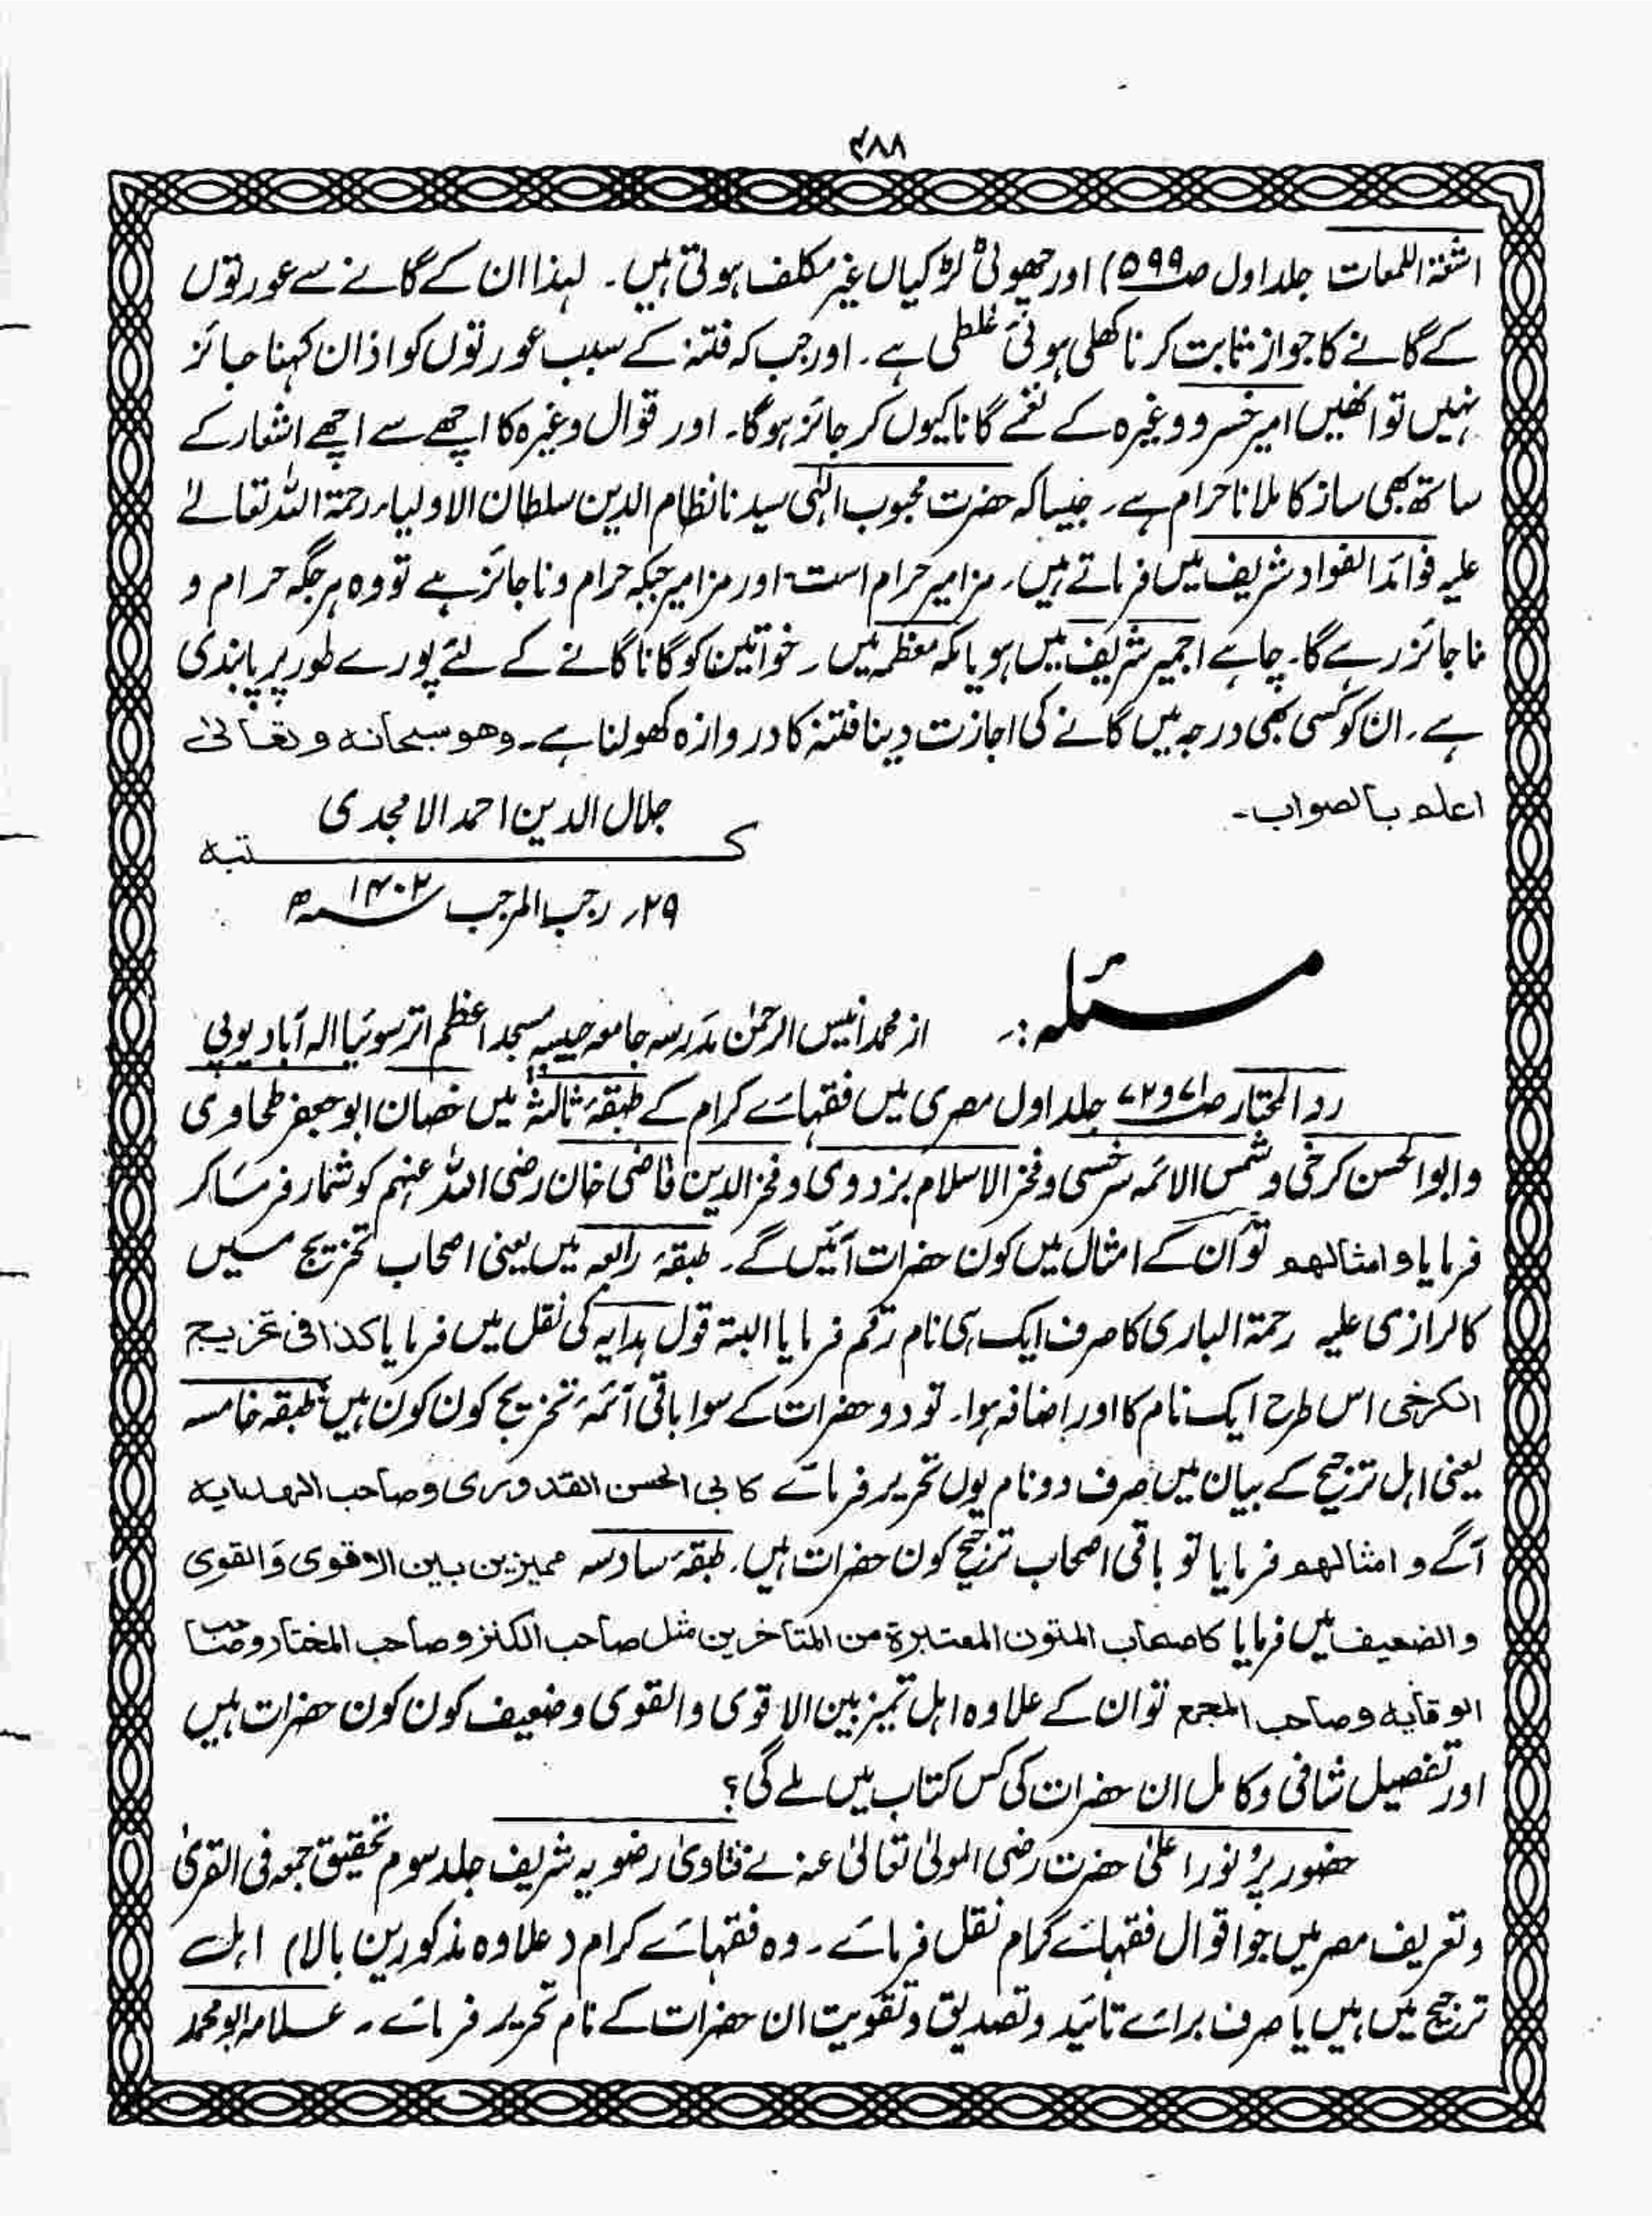 ۴۸۸
اشعۃ اللمعات جلد اول صـ۵۹۹) اور چھوٹی لڑکیاں غیر مکلف ہوتی ہیں۔ لہذا ان کے گانے سے عورتوں
کے گانے کا جواز ثابت کرنا کھلی ہوئی غلطی ہے۔ اور جب کہ فتنہ کے سبب عورتوں کو اذان کہنا جائز
نہیں تو انھیں امیر خسرو وغیرہ کے نغمے گانا کیوں کر جائز ہوگا۔ اور قوال وغیرہ کا اچھے سے اچھے اشعار کے
ساتھ بھی ساز کا ملانا حرام ہے۔ جیسا کہ حضرت محبوب الٰہی سیدنا نظام الدین سلطان الاولیاء رحمۃ اللہ تعالےٰ
علیہ فوائد الفواد شریف میں فرماتے ہیں۔ مزامیر حرام است اور مزامیر جبکہ حرام و ناجائز ہے تو وہ ہر جگہ حرام و
ناجائز رہے گا۔ چاہے اجمیر شریف میں ہو یا مکہ معظمہ میں۔ خواتین کو گانا گانے کے لئے پورے طور پر پابندی
ہے۔ ان کو کسی بھی درجہ میں گانے کی اجازت دینا فتنہ کا دروازہ کھولنا ہے۔ وھو سبحانہ وتعالیٰ
اعلم بالصواب۔
جلال الدین احمد الامجدی
کتبہ
۲۹؍ رجب المرجب ۱۴۰۲ھ
مسئلہ:۔ از محمد انیس الرحمٰن مدرسہ جامعہ حبیبیہ مسجد اعظم اترسوئیا الہ آباد یوپی
رد المحتار صـ۷۱ و ۷۲ جلد اول مصری میں فقہائے کرام کے طبقۂ ثالثہ میں خصاف ابو جعفر طحاوی
و ابوالحسن کرخی و شمس الائمہ سرخسی و فخر الاسلام بزدوی و فخر الدین قاضی خان رضی اللہ عنہم کو شمار فرما کر
فرمایا و امثالھم تو ان کے امثال میں کون حضرات آئیں گے۔ طبقۂ رابعہ میں یعنی اصحاب تخریج میں
کالرازی علیہ رحمۃ الباری کا صرف ایک ہی نام رقم فرمایا البتہ قول ہدایہ کی نقل میں فرمایا کذا فی تخریج
الکرخی اس طرح ایک نام کا اور اضافہ ہوا۔ تو دو حضرات کے سوا باقی ائمۂ تخریج کون کون ہیں طبقۂ خامسہ
یعنی اہل ترجیح کے بیان میں صرف دو نام یوں تحریر فرمائے کابی الحسن القدوری وصاحب الھدایہ
آگے و امثالھم فرمایا تو باقی اصحاب ترجیح کون حضرات ہیں۔ طبقۂ سادسہ ممیزین بین الاقوی والقوی
والضعیف میں فرمایا کاصحاب المتون المعتبرۃ من المتاخرین مثل صاحب الکنز وصاحب المختار وصاحب
الوقایہ وصاحب المجمع تو ان کے علاوہ اہل تمیز بین الاقوی والقوی وضعیف کون کون حضرات ہیں
اور تفصیل شافی وکامل ان حضرات کی کس کتاب میں ملے گی؟
حضور پرنور اعلیٰ حضرت رضی المولیٰ تعالیٰ عنہ نے فتاویٰ رضویہ شریف جلد سوم تحقیق جمعہ فی القریٰ
و تعریف مصر میں جو اقوال فقہائے کرام نقل فرمائے۔ وہ فقہائے کرام (علاوہ مذکورین بالا) اہل
ترجیح میں ہیں یا صرف برائے تائید و تصدیق و تقویت ان حضرات کے نام تحریر فرمائے۔ علامہ ابو محمد